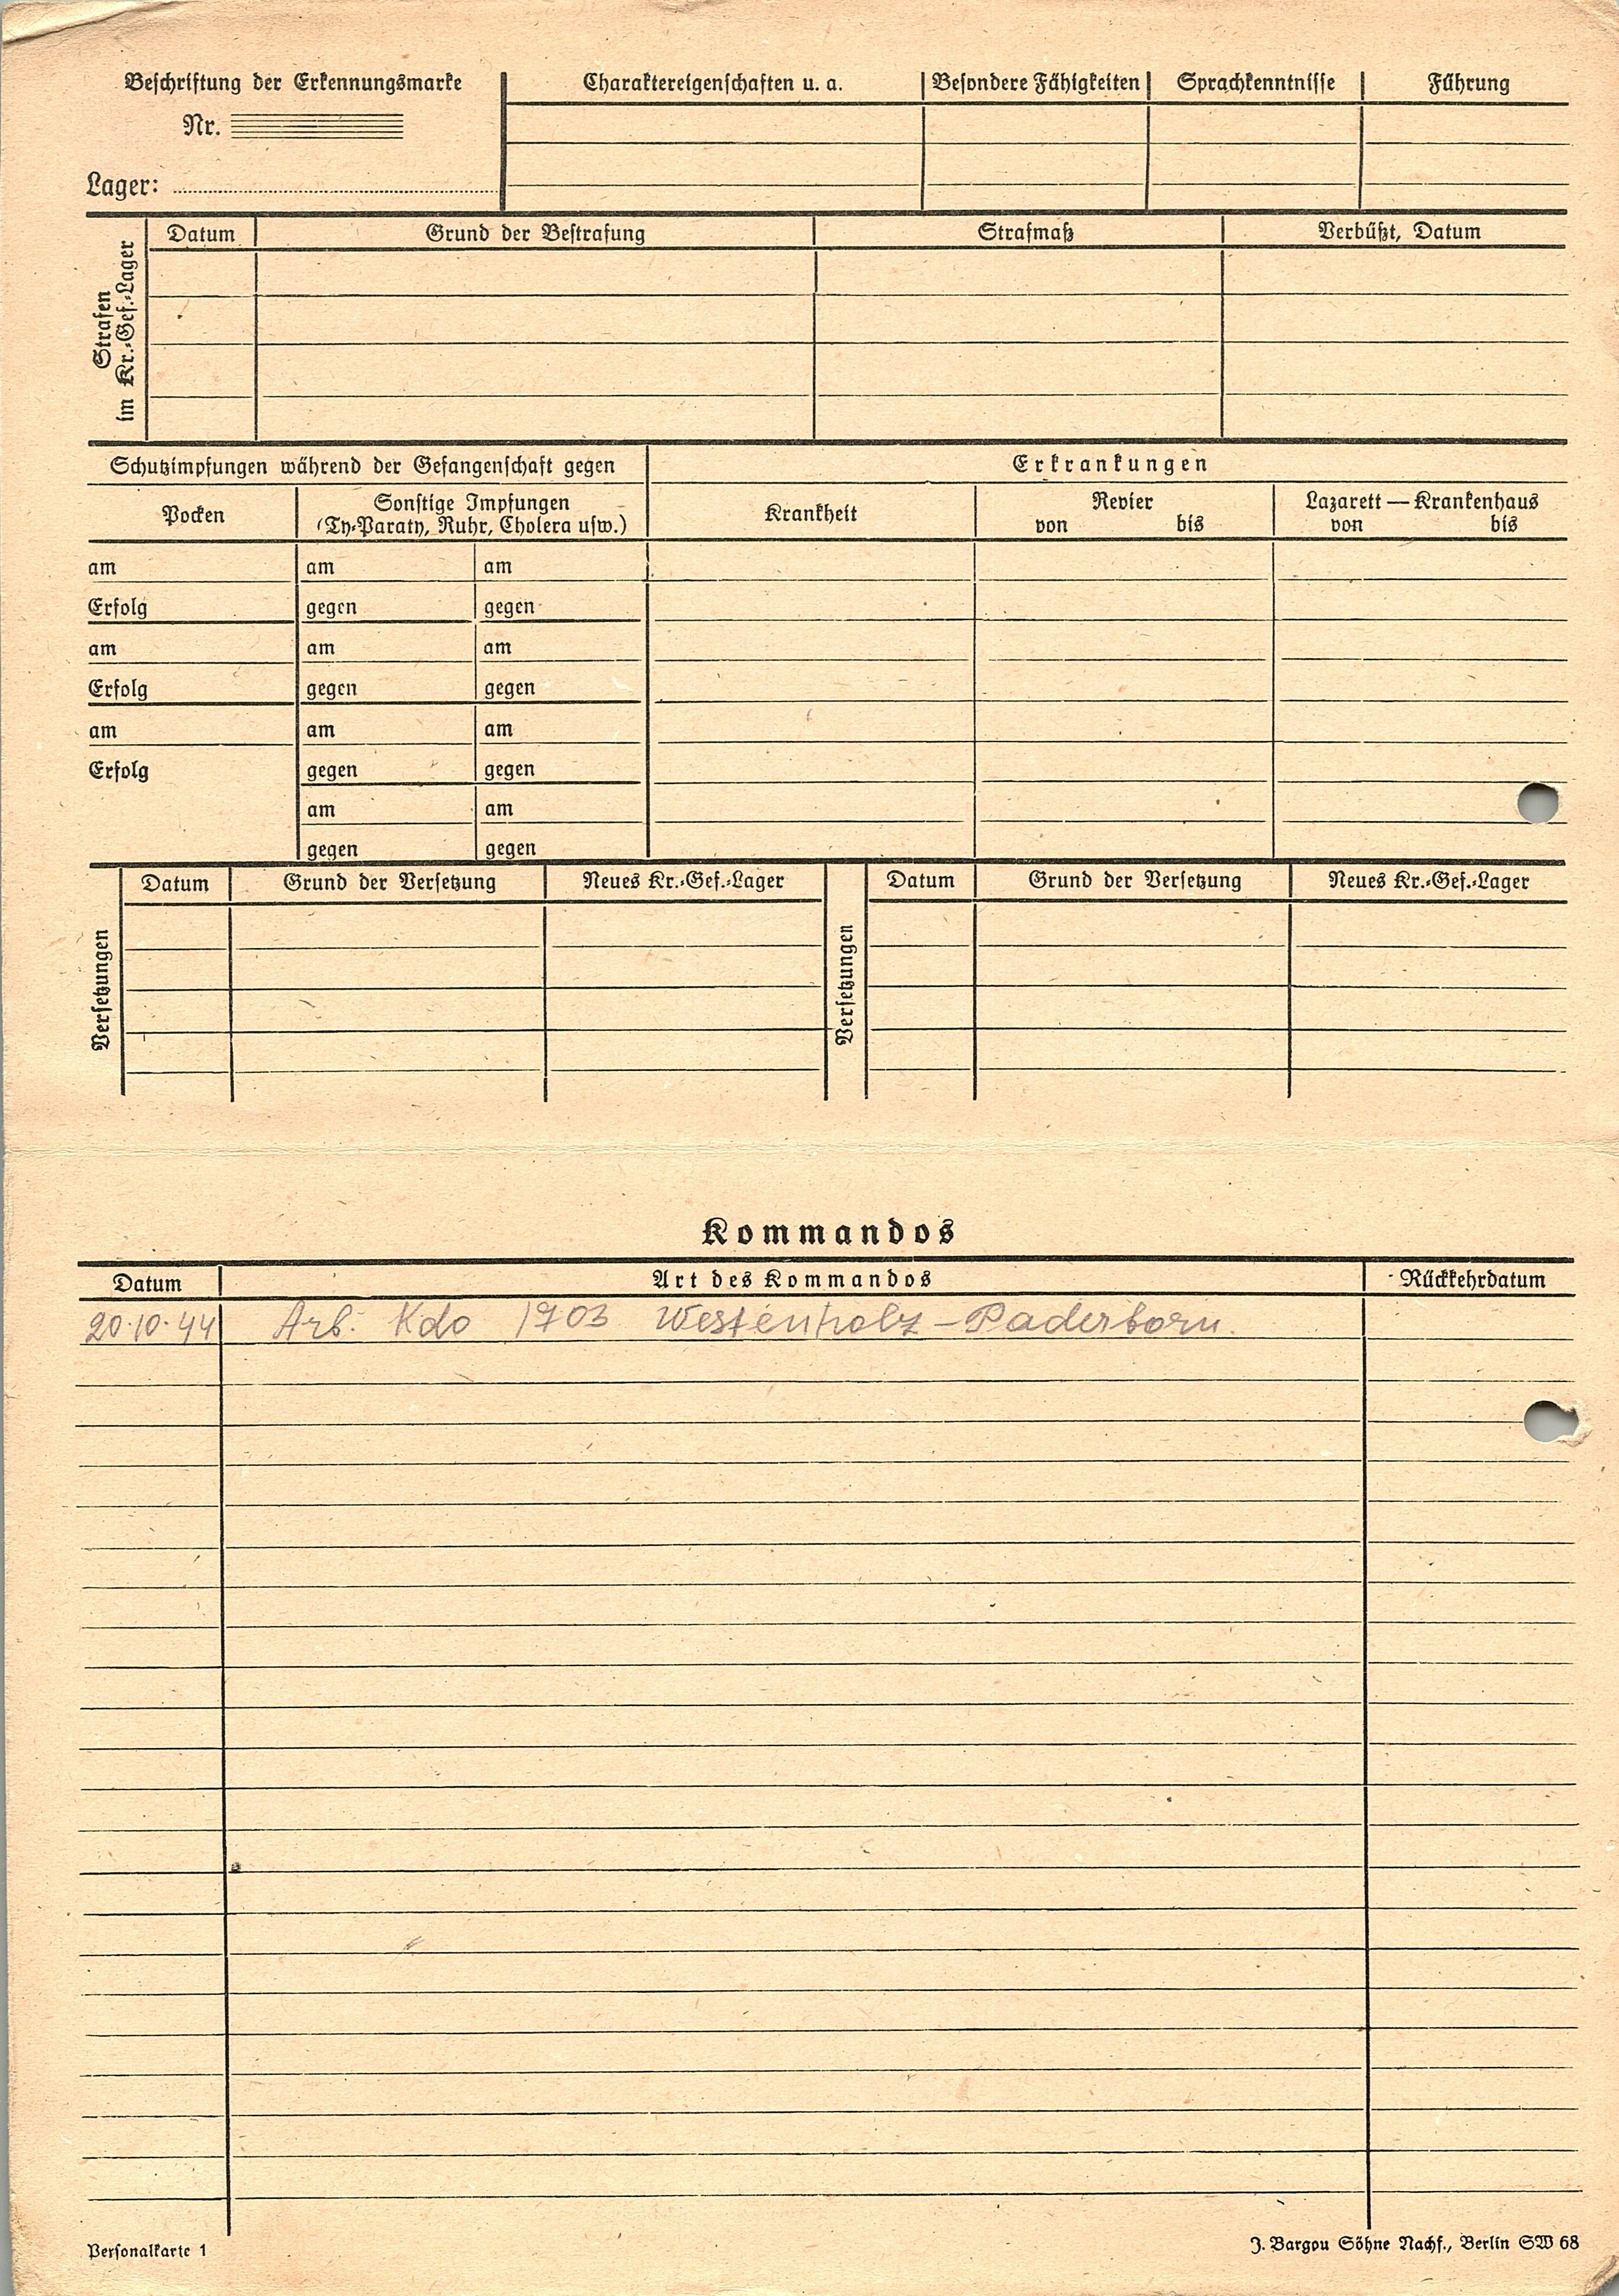 Beschriftung der Erkennungsmarke
Nr.
Lager:
Charaktereigenschaften u. a.
Besondere Fähigkeiten
Sprachkenntnisse
Führung
Strafen
im Kr.-Gef.-Lager
Datum
Grund der Bestrafung
Strafmaß
Verbüßt, Datum
Schutzimpfungen während der Gefangenschaft gegen
Erkrankungen
Pocken
Sonstige Impfungen
(Ty-Paraty, Ruhr, Cholera usw.)
Krankheit
Revier
von bis
Lazarett — Krankenhaus
von bis
am am am
Erfolg gegen gegen
am am am
Erfolg gegen gegen
am am am
Erfolg gegen gegen
am am
gegen gegen
Versetzungen
Datum Grund der Versetzung Neues Kr.-Gef.-Lager
Versetzungen
Datum Grund der Versetzung Neues Kr.-Gef.-Lager
Kommandos
Datum Art des Kommandos Rückkehrdatum
20.10.44 Arb. Kdo 1703 Westenholz - Paderborn.
Personalkarte 1
J. Bargou Söhne Nachf., Berlin SW 68